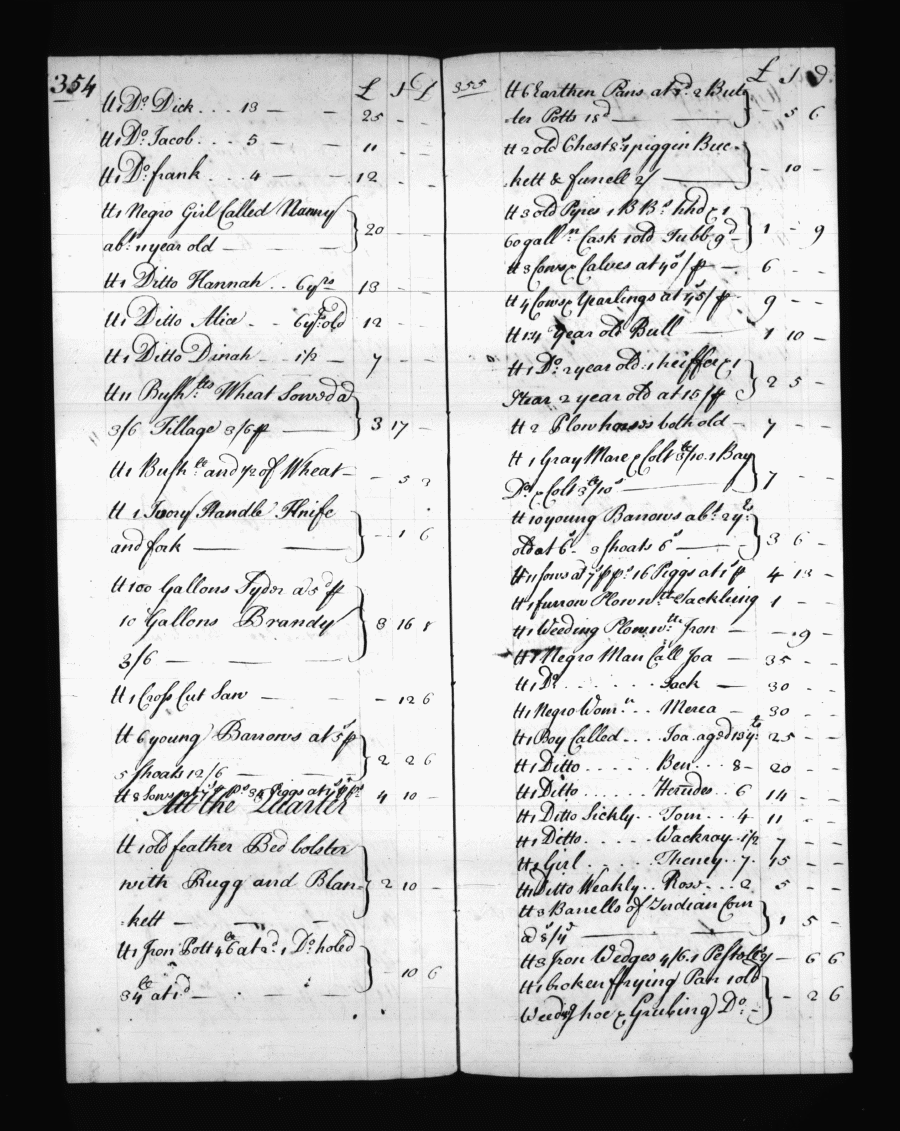 354
£ S D
tt 1 Do. Dick . . . 13 — — 25 - -
tt 1 Do. Jacob . . . 5 — — 11 - -
tt 1 Do. frank . . . 4 — — 12 - -
tt 1 Negro Girl Called Nanny
abt. 11 year old — — — — 20 - -
tt 1 Ditto Hannah . . 6 yrs — 13 - -
tt 1 Ditto Alice . . 6 yrs. old 12 - -
tt 1 Ditto Dinah — 1½ — 7 - -
tt 11 Bushtts Wheat Sowd a
3/6 Tillage 3/6 p — 3 17 -
tt 1 Bushll and ½ of Wheat — - 5
tt 1 Ivory Handle Knife
and fork — — - 1 6
tt 100 Gallons Syder a 5d p
10 Gallons Brandy 8 16 8
3/6 — — —
tt 1 Cross Cut Saw — — - 12 6
tt 6 young Barrows at 5s p
5 Shoats 12/6 — — 2 2 6
tt 8 Sows at 7s p ps 34 Piggs at 1s p ps 4 10 -
Att the Quarter
tt 1 old feather Bed bolster
with Rugg and Blan- 2 10 -
-kett — — —
tt 1 Iron Pott 46 at 2d. 1 Do. holed
34 at 1d — - 10 6
355
£ S D
tt 6 Earthen Pans at 7d. 2 But-
ter Potts 18d — — - 5 6
tt 2 old Chests 8s 1 piggin Buc-
kett & funell 2/ — - 10 -
tt 3 old Pypes 1 BBs. hhd & 1
60 galln Cask 1 old Tubb 9d — 1 - 9
tt 3 Cows & Calves at 40s/p — 6 - -
tt 4 Cows & Yearlings at 45s/p 9 - -
tt 1 4 year old Bull — 1 10 -
tt 1 Do. 2 year old. 1 heiffer & 1
Stear 2 year old at 15/p 2 5 -
tt 2 Plow horses both old — 7 - -
tt 1 Gray Mare & Colt £3/10. 1 Bay
Do. & Colt 3£/10s — 7 - -
tt 10 young Barrows abt. 2 yrs
old at 6s — 3 Shoats 6s — 3 6 -
tt 11 Sows at 7s p ps 16 Piggs at 1s p 4 13 -
tt 1 furrow Plow wth Tackling 1 - -
tt 1 Weeding Plow wth Iron — - 9 -
tt 1 Negro Man Call Joa — 35 - -
tt 1 Do. . . . . . . Jack — 30 - -
tt 1 Negro Womn . . Merea — 30 - -
tt 1 Boy Called . . . Joa . aged 13 yrs 25 - -
tt 1 Ditto . . . . . Ben . . . 8 — 20 - -
tt 1 Ditto . . . . . Herudes . . 6 14 - -
tt 1 Ditto Sickly . . Tom . . . 4 11 - -
tt 1 Ditto . . . . . Wackray . 1½ 7 - -
tt 1 Girl . . . . . Theney . . 7 . 15 - -
tt 1 Ditto Weakly . . Rose . . . 2 5 - -
tt 3 Barrells of Indian Corn
a 8s/4d — — 1 5 -
tt 3 Iron Wedges 4/6. 1 — 6 6
tt 1 broken frying Pan 1 old
Weedg hoe & Grubing Do. - 2 6